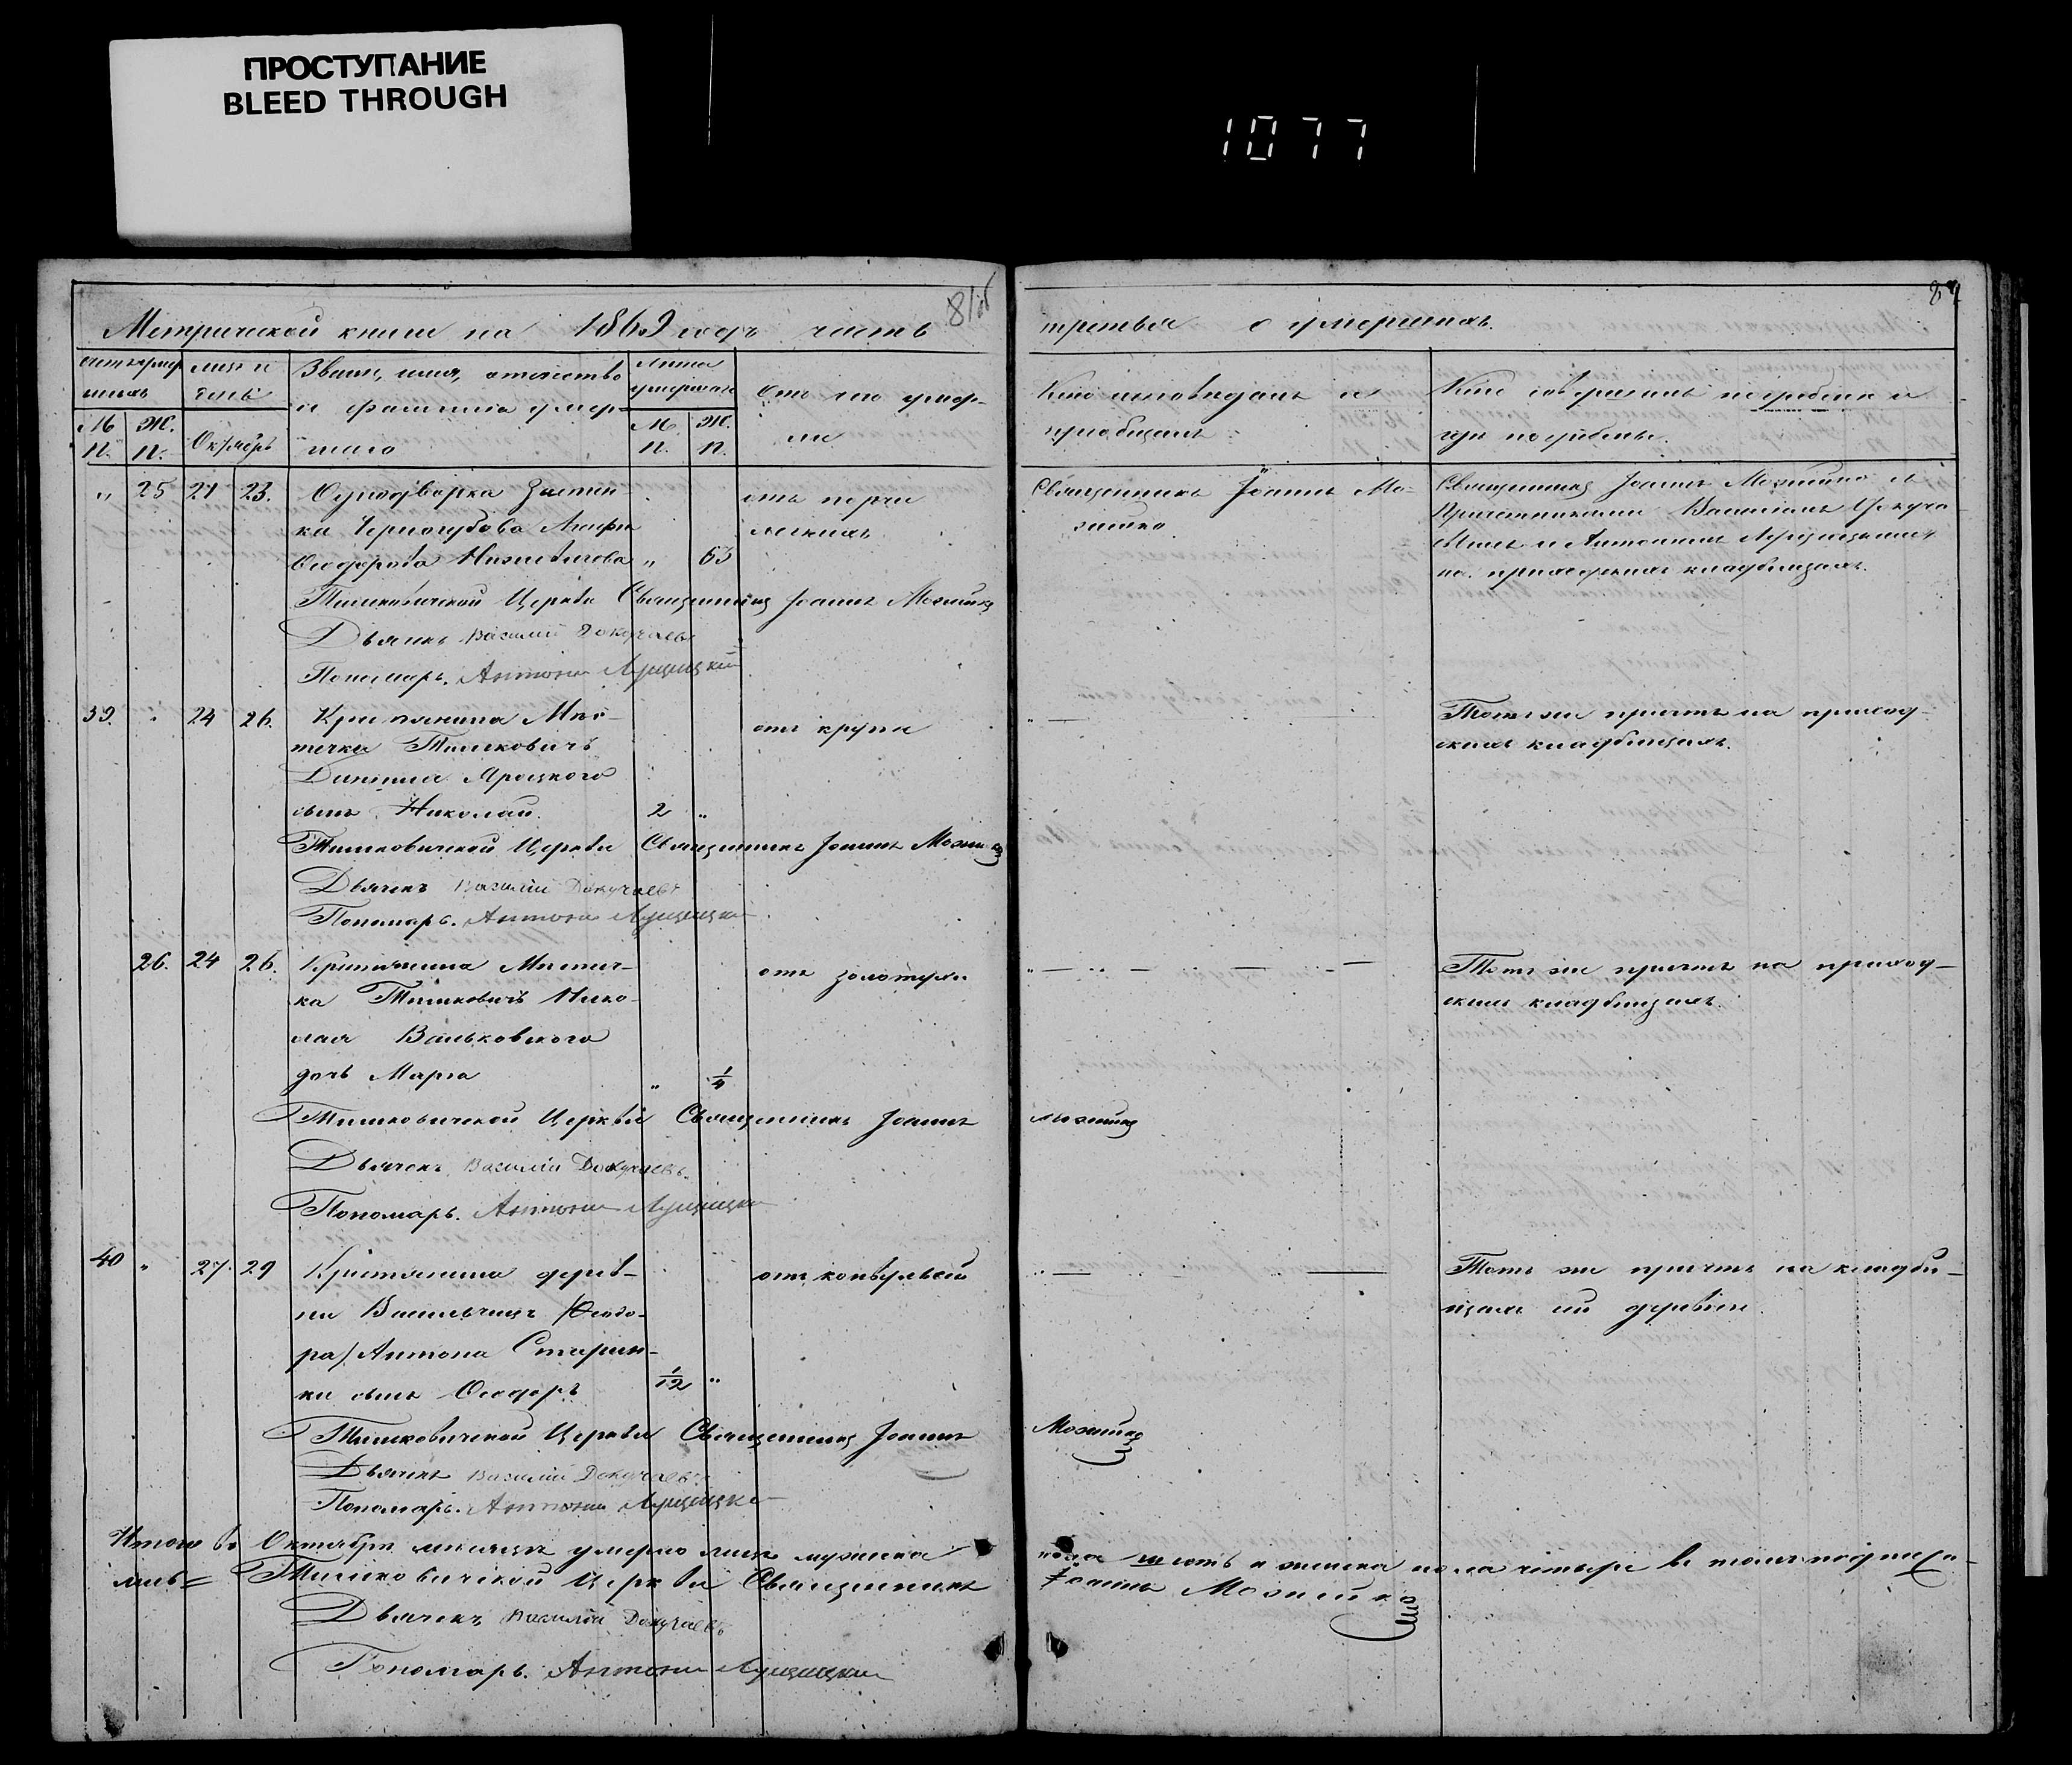 ПРОСТУПАНИЕ
BLEED THROUGH
1077
Метрической книги на 1869 годъ часть
третья о умершихъ.
87
Званіе, имя, отчество
и фамилія умер-
шаго
Лѣта
умершаго
М. Ж.
П. П.
Октябрь
М. Ж.
П. П.
Отъ чего умер-
ли
Кто исповѣдалъ и
пріобщалъ
Кто совершалъ погребеніе и
гдѣ погребены.
" 25 21 23. Однодворка застѣн-
ка Агафія
Ѳеодорова " 63
отъ порчи
легкихъ
Священникъ Іоаннъ Мо-
жейко
Священникъ Іоаннъ Можейко съ
Причетниками Василіемъ Докуча-
евымъ и Антоніемъ Лущицкимъ
на приходскихъ кладбищахъ.
Тимковичской Церкви Священникъ Іоаннъ Можейко
Дьячекъ Василій Докучаевъ
Пономарь. Антоній Лущицкій
39. " 24 26. Крестьянина Мѣс-
течка Тимковичъ
Даніила Яроцкого
сынъ Николай. 2 "
отъ крупа
Тотъ же причтъ на приход-
скихъ кладбищахъ.
Тимковичской Церкви Священникъ Іоаннъ Можейко
Дьячекъ Василій Докучаевъ
Пономарь. Антоній Лущицкій
26. 24 26. Крестьянина Мѣстеч-
ка Тимковичъ Нико-
лаяВаньковского
дочь Марія " 1/4
отъ золотухи
Тотъ же причтъ на приход-
скихъ кладбищахъ.
Тимковичской Церкви Священникъ Іоаннъ Можейко
Дьячекъ Василій Докучаевъ
Пономарь. Антоній Лущицкій
40 " 27. 29 Крестьянина дерев-
ни Васильчицъ /Ѳеодо-
ра/ Антона Старин-
ки сынъ Ѳеодоръ 1/12 "
отъ конвульсій
Тотъ же причтъ на кладби-
щахъ сей деревни.
Тимковичской Церкви Священникъ Іоаннъ Можейко
Дьячекъ Василій Докучаевъ
Пономарь. Антоній Лущицкій
Итого въ Октябрѣ мѣсяцѣ умерло лицъ мужеска пола шесть и женска пола четыре въ томъ подписа-
лись= Тимковичской Церкви Священникъ Іоаннъ Можейко
Дьячекъ Василій Докучаевъ
Пономарь. Антоній Лущицкій